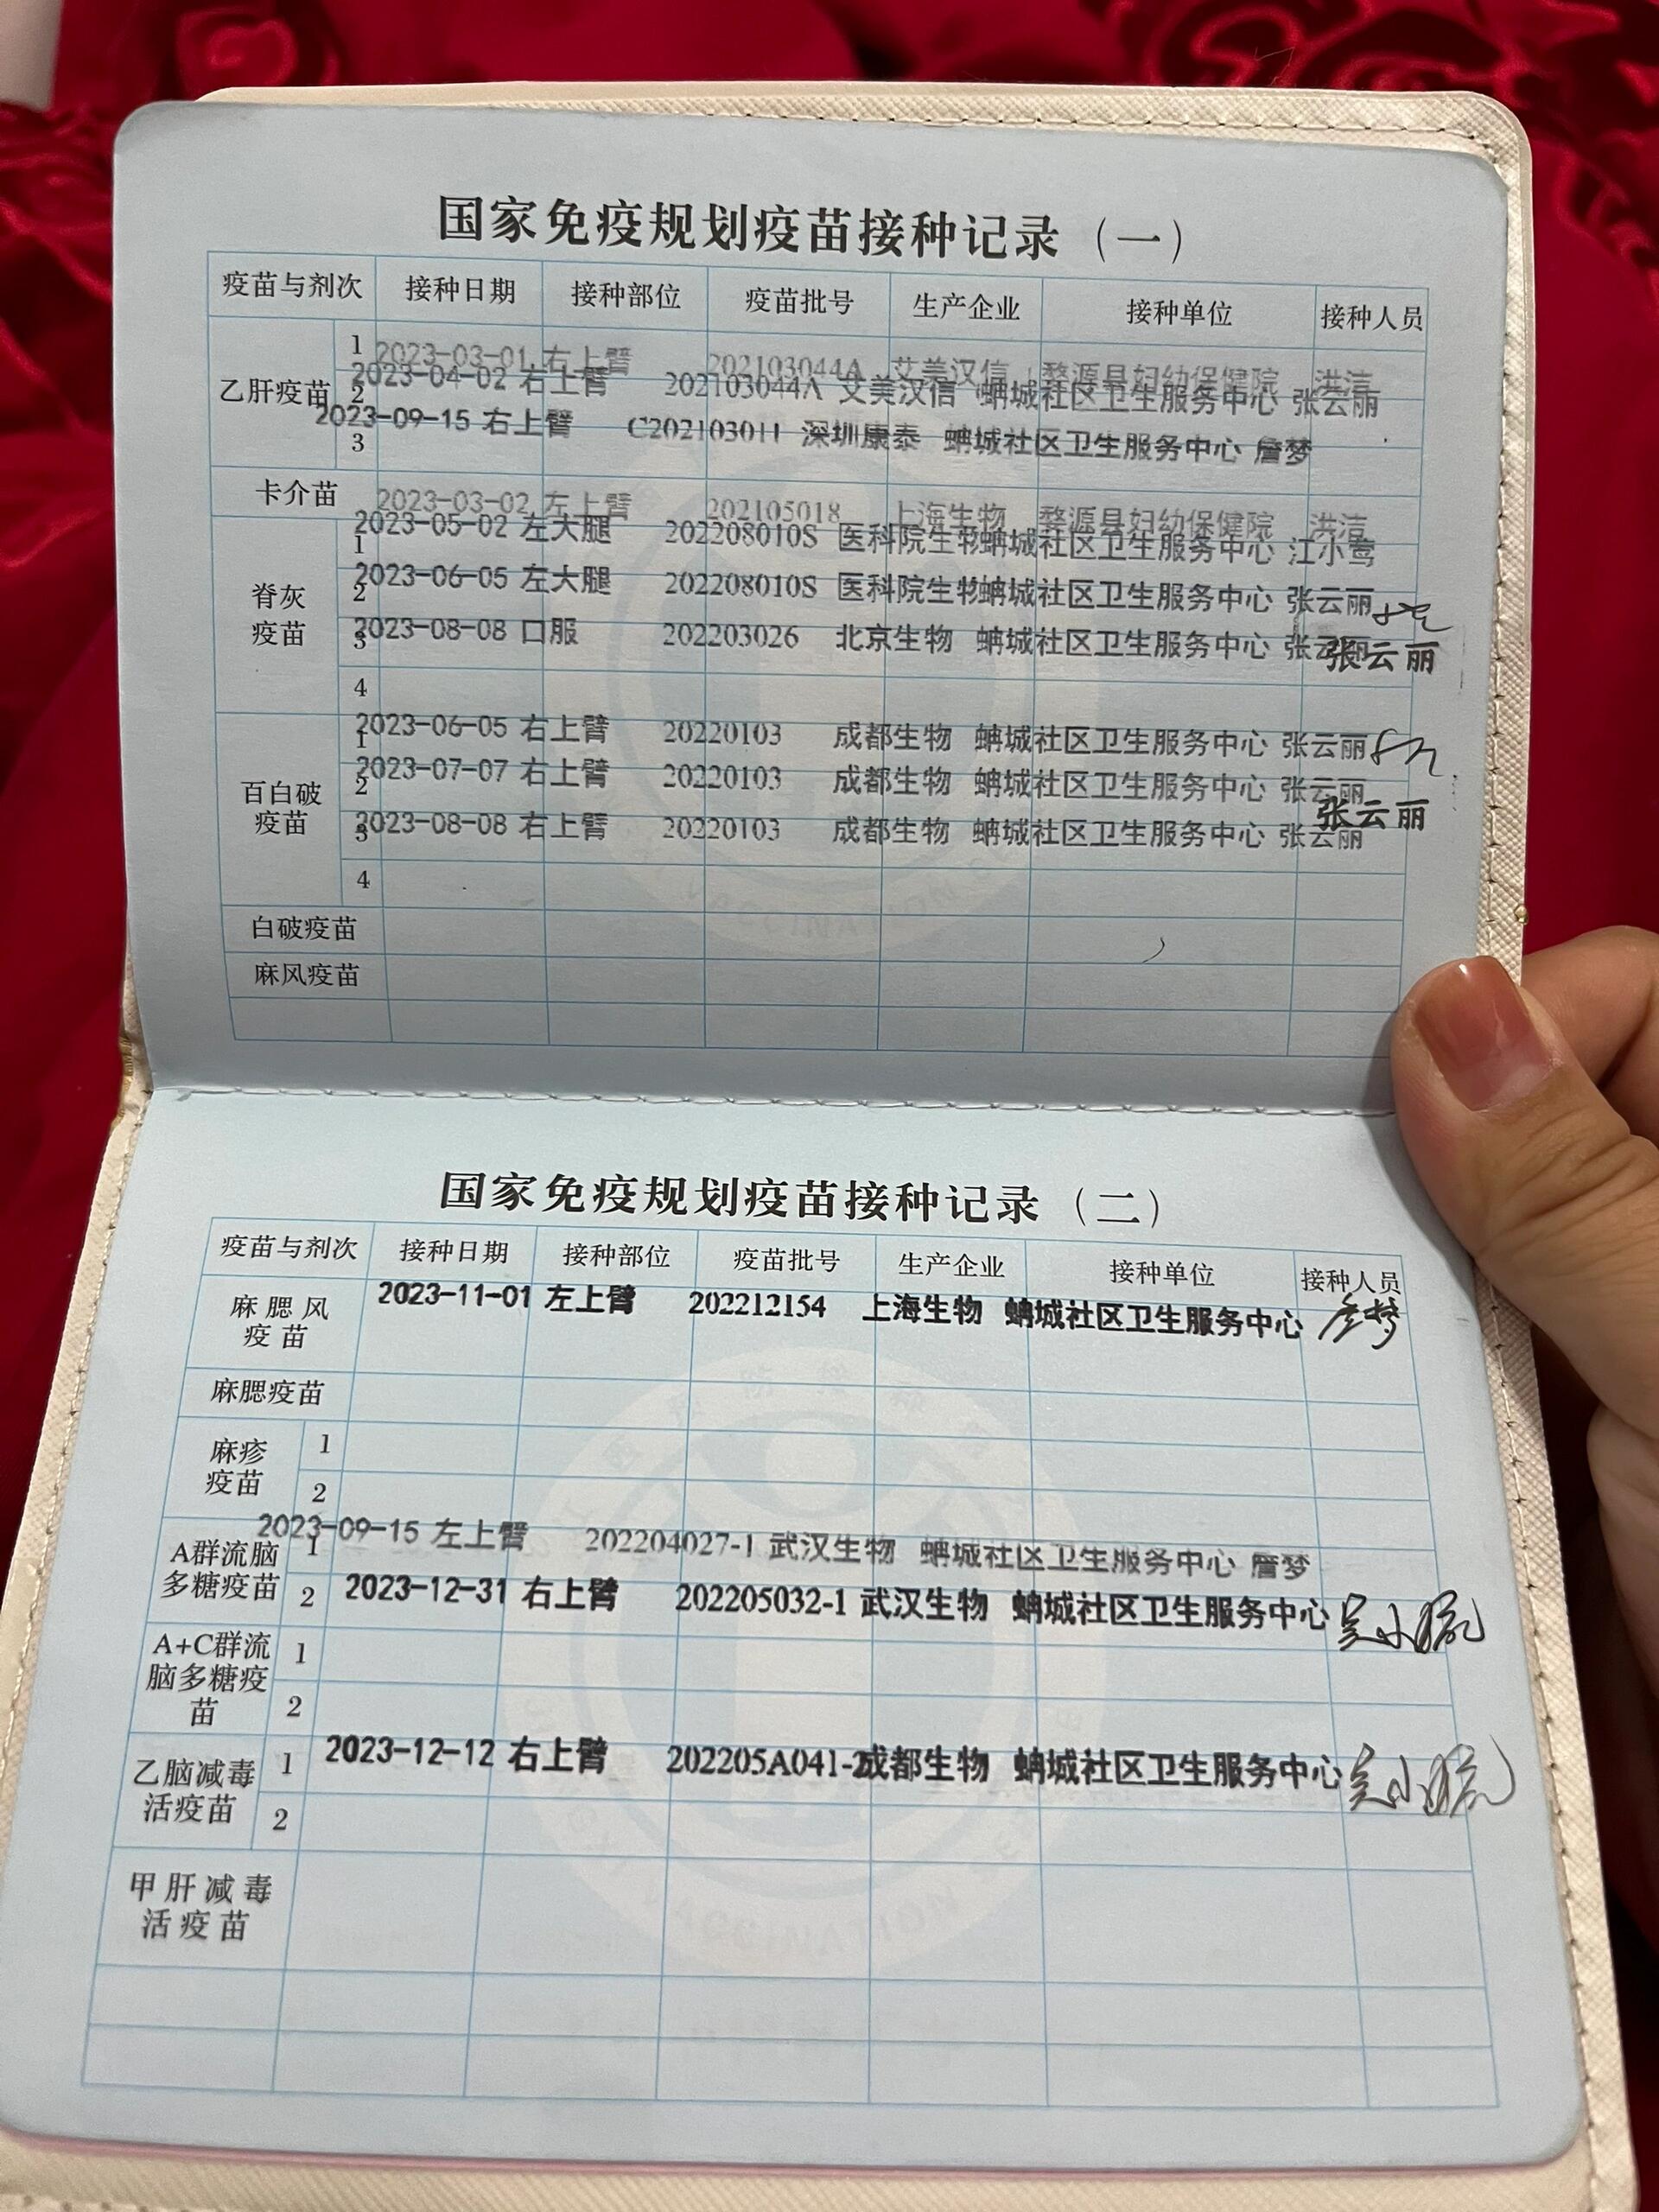 国家免疫规划疫苗接种记录（一）
疫苗与剂次 接种日期 接种部位 疫苗批号 生产企业 接种单位 接种人员
乙肝疫苗
1 2023-03-01 右上臂 202103044A 艾美汉信 婺源县妇幼保健院 洪洁
2 2023-04-02 右上臂 202103044A 艾美汉信 蚺城社区卫生服务中心 张云丽
3 2023-09-15 右上臂 C202103011 深圳康泰 蚺城社区卫生服务中心 詹梦
卡介苗 2023-03-02 左上臂 202105018 上海生物 婺源县妇幼保健院 洪洁
脊灰疫苗
1 2023-05-02 左大腿 202208010S 医科院生物 蚺城社区卫生服务中心 江小莺
2 2023-06-05 左大腿 202208010S 医科院生物 蚺城社区卫生服务中心 张云丽
3 2023-08-08 口服 202203026 北京生物 蚺城社区卫生服务中心 张云丽 张云丽
4
百白破疫苗
1 2023-06-05 右上臂 20220103 成都生物 蚺城社区卫生服务中心 张云丽
2 2023-07-07 右上臂 20220103 成都生物 蚺城社区卫生服务中心 张云丽
张云丽
3 2023-08-08 右上臂 20220103 成都生物 蚺城社区卫生服务中心 张云丽
4
白破疫苗
麻风疫苗
国家免疫规划疫苗接种记录（二）
疫苗与剂次 接种日期 接种部位 疫苗批号 生产企业 接种单位 接种人员
麻腮风疫苗 2023-11-01 左上臂 202212154 上海生物 蚺城社区卫生服务中心 詹梦
麻腮疫苗
麻疹疫苗
1
2
A群流脑多糖疫苗
1 2023-09-15 左上臂 202204027-1 武汉生物 蚺城社区卫生服务中心 詹梦
2 2023-12-31 右上臂 202205032-1 武汉生物 蚺城社区卫生服务中心
A+C群流脑多糖疫苗
1
2
乙脑减毒活疫苗
1 2023-12-12 右上臂 202205A041-2 成都生物 蚺城社区卫生服务中心
2
甲肝减毒活疫苗